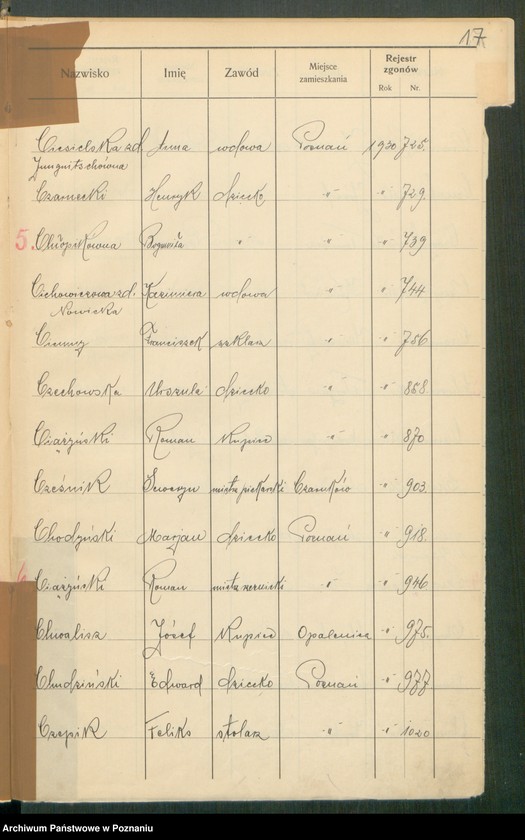 17
Nazwisko Imię Zawód Miejsce zamieszkania Rejestr zgonów
Rok Nr.
Ciesielska zd Anna wdowa Poznań 1930 725.
Jungnitschówna
Czarnecki Henryk dziecko " " 729.
5. Chłopikowna " " " 739
Cichowiczowa zd. Kazimiera wdowa " " 744
Nowicka
Ciemny Franciszek szklarz " " 756
Czechowska Urszula dziecko " " 858
Ciążyński Roman Kupiec " " 870
Cześnik Seweryn mistrz piekarski Czarnków " 903.
Chodyński Marjan dziecko Poznań " 918.
Ciążyński Roman mistrz " " 946
Chwalisz Józef Kupiec Opalenica " 975.
Chudziński Edward dziecko Poznań " 977
Czepik Feliks stolarz " " 1020
Archiwum Państwowe w Poznaniu